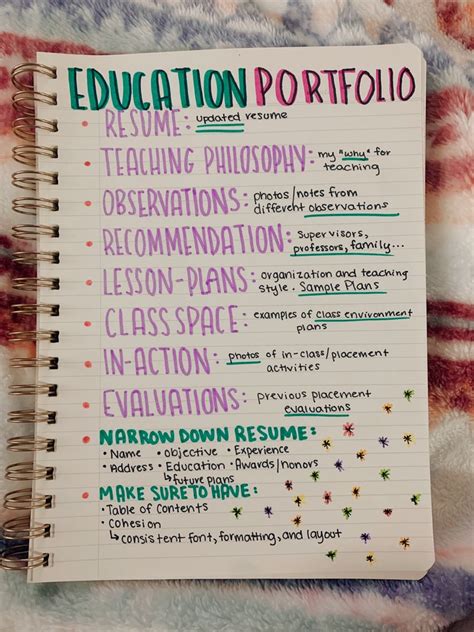 EDUCATION PORTFOLIO
• RESUME: updated resume
• TEACHING PHILOSOPHY: my "why" for
teaching
• OBSERVATIONS: photos/notes from
different observations
• RECOMMENDATION: supervisors,
professors, family...
• LESSON-PLANS: organization and teaching
style. Sample Plans
• CLASS SPACE: examples of class environment
plans
• IN-ACTION: photos of in-class/placement
activities
• EVALUATIONS: previous placement
evaluations
• NARROW DOWN RESUME:
• Name • objective • Experience
• Address • Education • Awards/honors
↳ future plans
• MAKE SURE TO HAVE:
• Table of Contents
• Cohesion
↳ consistent font, formatting, and layout